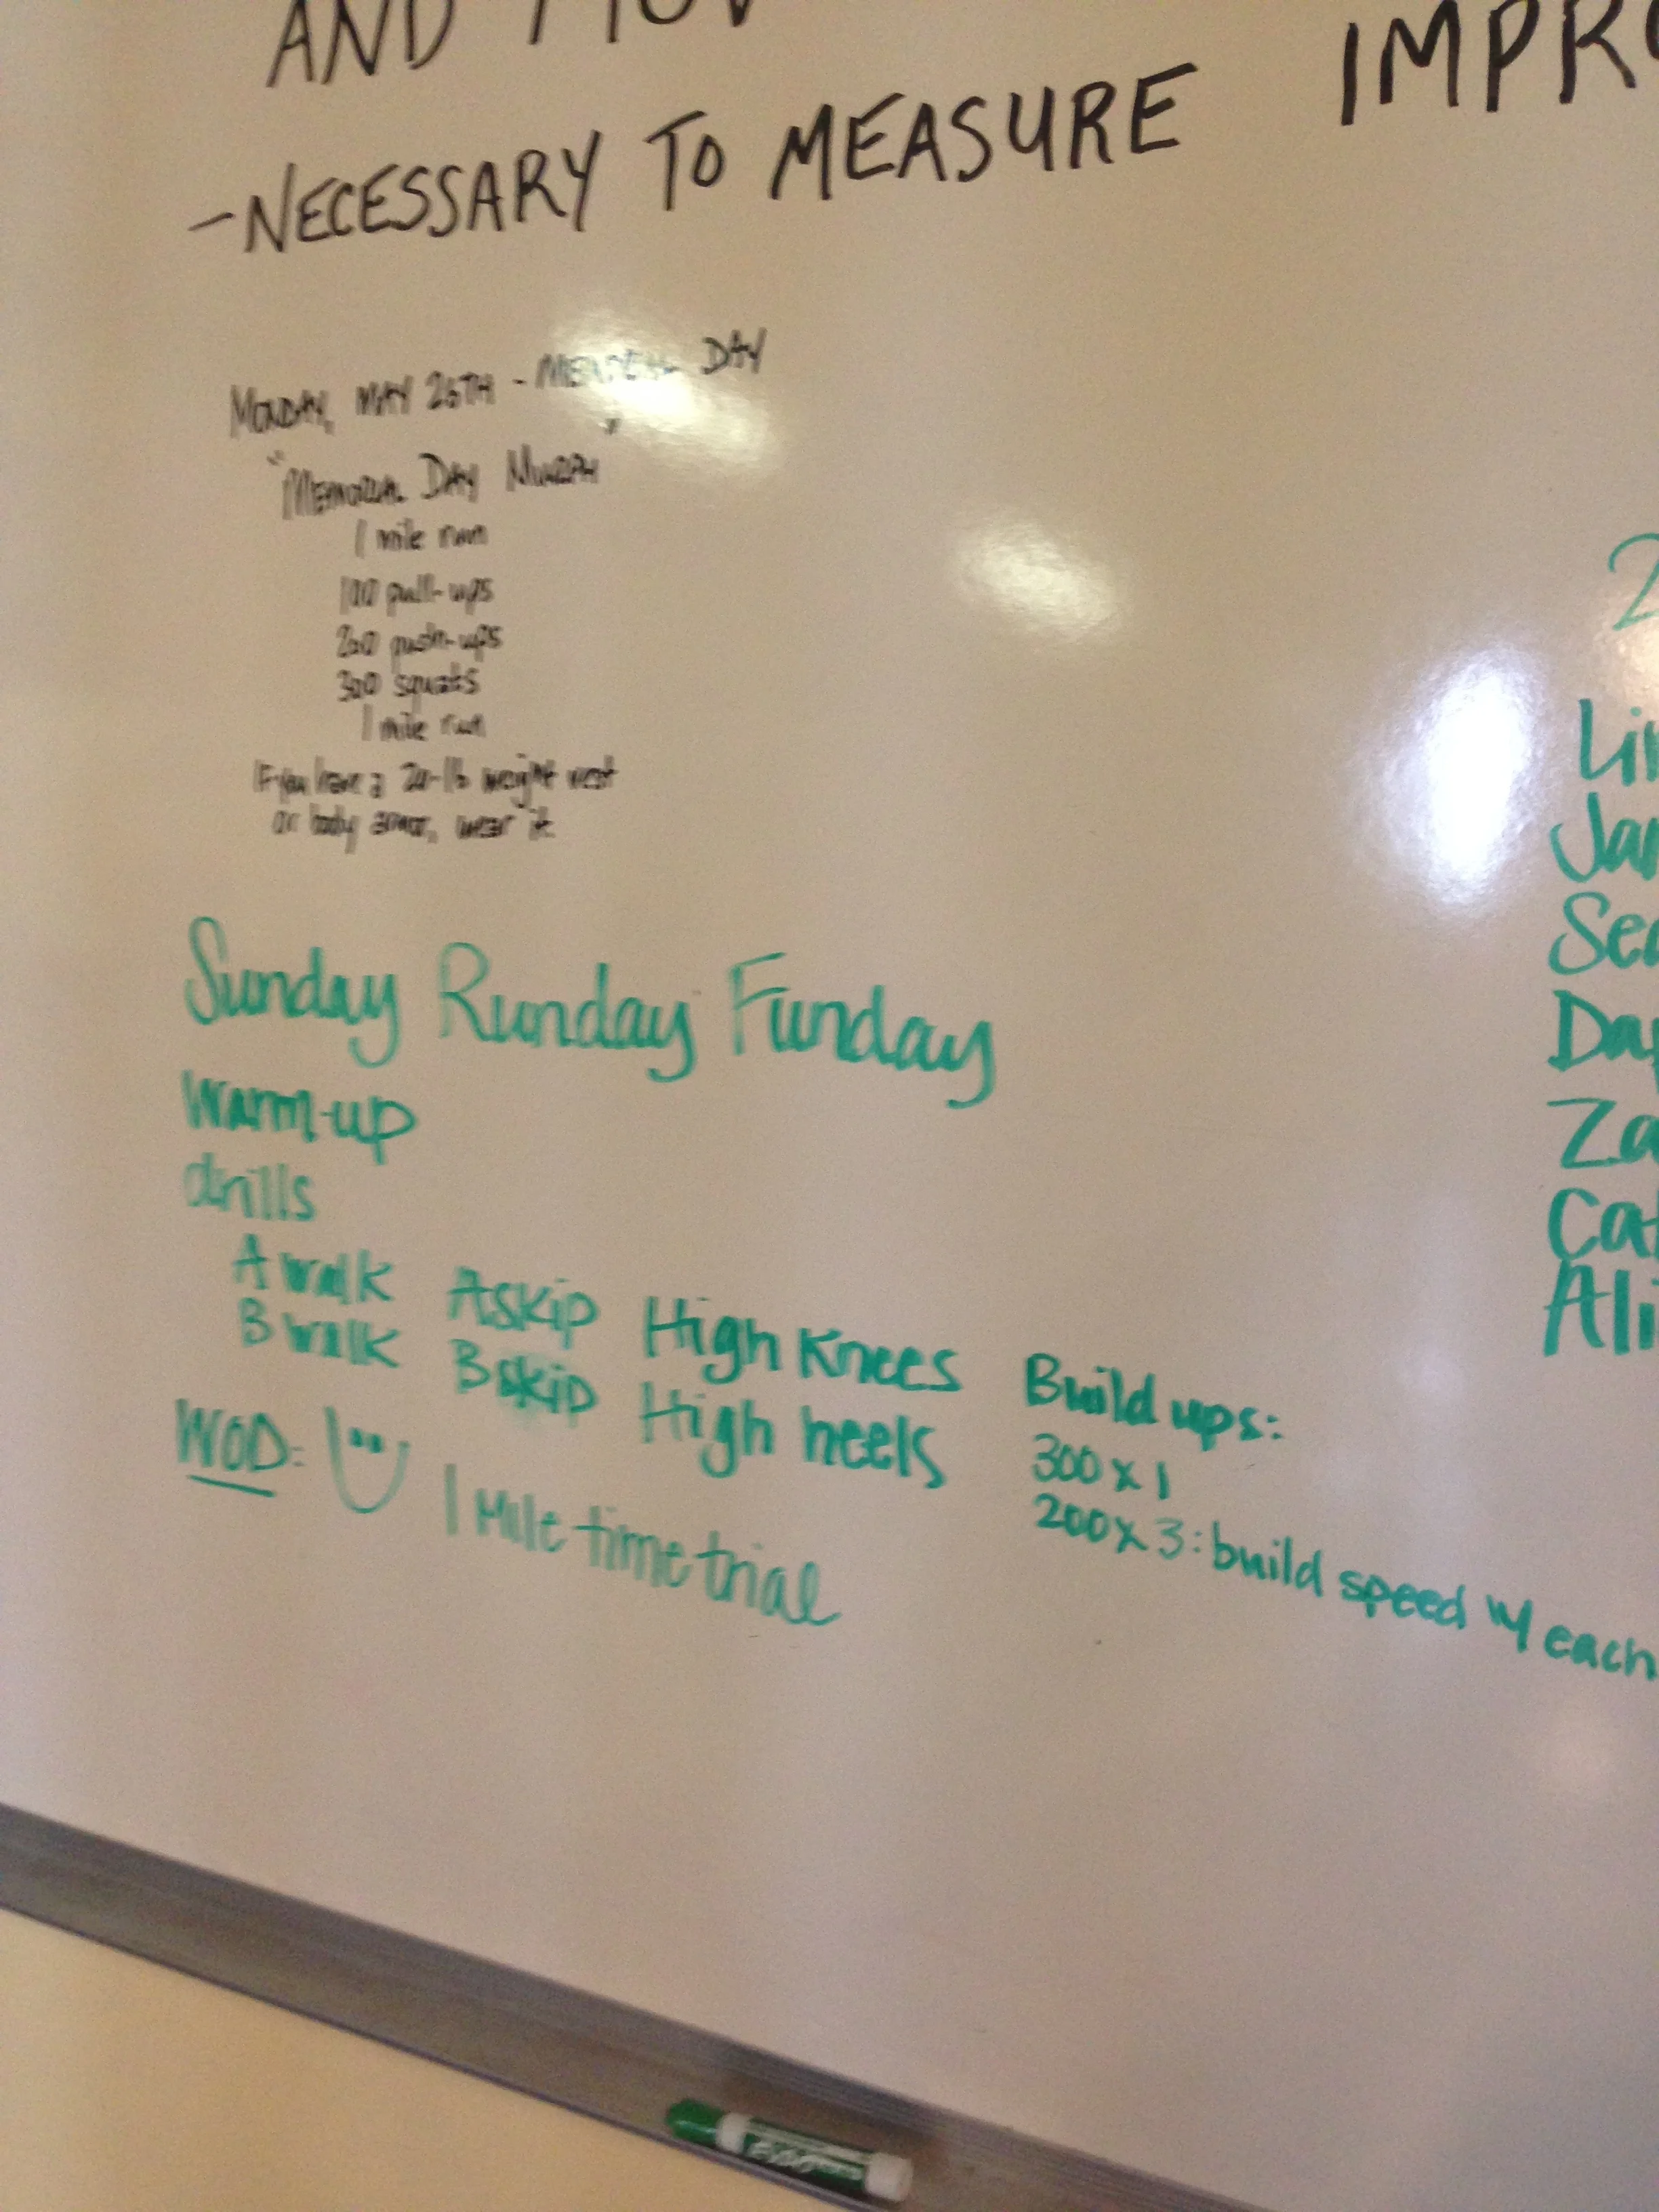 AND MOV
- NECESSARY TO MEASURE IMPRO
MONDAY, MAY 26TH - MEMORIAL DAY
"MEMORIAL DAY MURPH"
1 mile run
100 pull-ups
200 push-ups
300 squats
1 mile run
If you have a 20-lb weight vest
or body armor, wear it.
Sunday Runday Funday
Warm-up
drills
A walk A skip High Knees
B walk B skip High heels
Build ups:
300 x 1
200 x 3: build speed w/ each
WOD: 1 Mile time trial
2
Lin
Jar
Sea
Dap
Za
Cat
Ali
EXPO